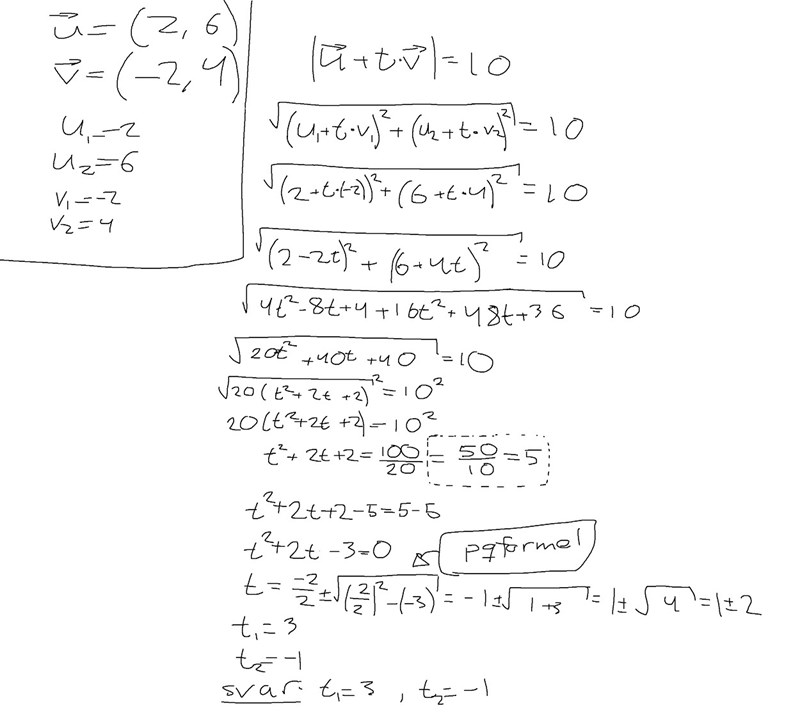 u⃗ = (2, 6)
v⃗ = (-2, 4)
u₁=2
u₂=6
v₁=-2
v₂=4
|u⃗ + t·v⃗| = 10
√((u₁+t·v₁)² + (u₂+t·v₂)²) = 10
√((2+t·(-2))² + (6+t·4)²) = 10
√((2-2t)² + (6+4t)²) = 10
√(4t²-8t+4+16t²+48t+36) = 10
√(20t²+40t+40) = 10
√(20(t²+2t+2))² = 10²
20(t²+2t+2) = 10²
t²+2t+2 = 100/20 = 50/10 = 5
t²+2t+2-5=5-5
t²+2t-3=0
pqformel
t = -2/2 ± √((2/2)²-(-3)) = -1±√(1+3) = 1±√4 = 1±2
t₁=3
t₂=-1
svar: t₁=3, t₂=-1